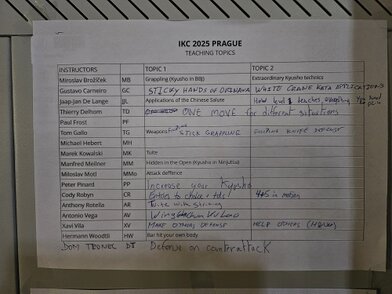 IKC 2025 PRAGUE
TEACHING TOPICS
INSTRUCTORS TOPIC 1 TOPIC 2
Miroslav Brožíček MB Grappling (Kyusho in BBJ) Extraordinary Kyusho technics
Gustavo Carneiro GC STICKY HANDS OF OKINAWA WHITE CRANE KATA APPLICATIONS
Jaap-Jan De Lange JJL Applications of the Chinese Salute How lead & teaches
Thierry Delhom TD ONE MOVE for different situations
Paul Frost PF
Tom Gallo TG Weapons STICK GRAPPLING KNIFE DEFENSE
Michael Hebert MH
Marek Kowalski MK Tuite
Manfred Meilner MM Hidden in the Open (Kyusho in Ninjutsu)
Miloslav Motl MMo Attack deffence
Peter Pinard PP Increase your Kyusho
Cody Robyn CR Entries to choke + tds 4+5 in motion
Anthony Rotella AR Tuite with striking
Antonio Vega AV Wing Chun
Xavi Vila XV MAKE OTHERS DEFENSE HELP OTHERS
Hermann Woodtli HW Bar hit your own body
DOM DT Defense on counterattack